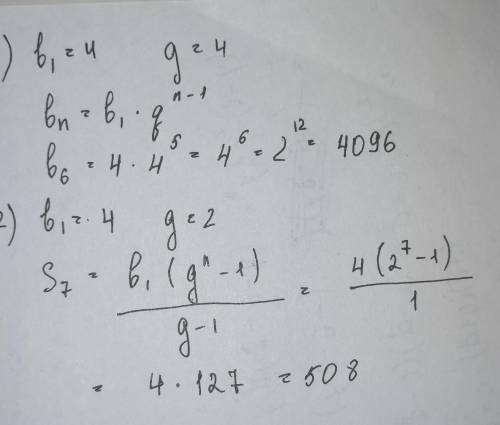 ) b₁ = 4 q = 4
bₙ = b₁ · qⁿ⁻¹
b₆ = 4 · 4⁵ = 4⁶ = 2¹² = 4096
2) b₁ = 4 q = 2
S₇ = b₁ (qⁿ - 1) / q - 1 = 4 (2⁷ - 1) / 1
= 4 · 127 = 508